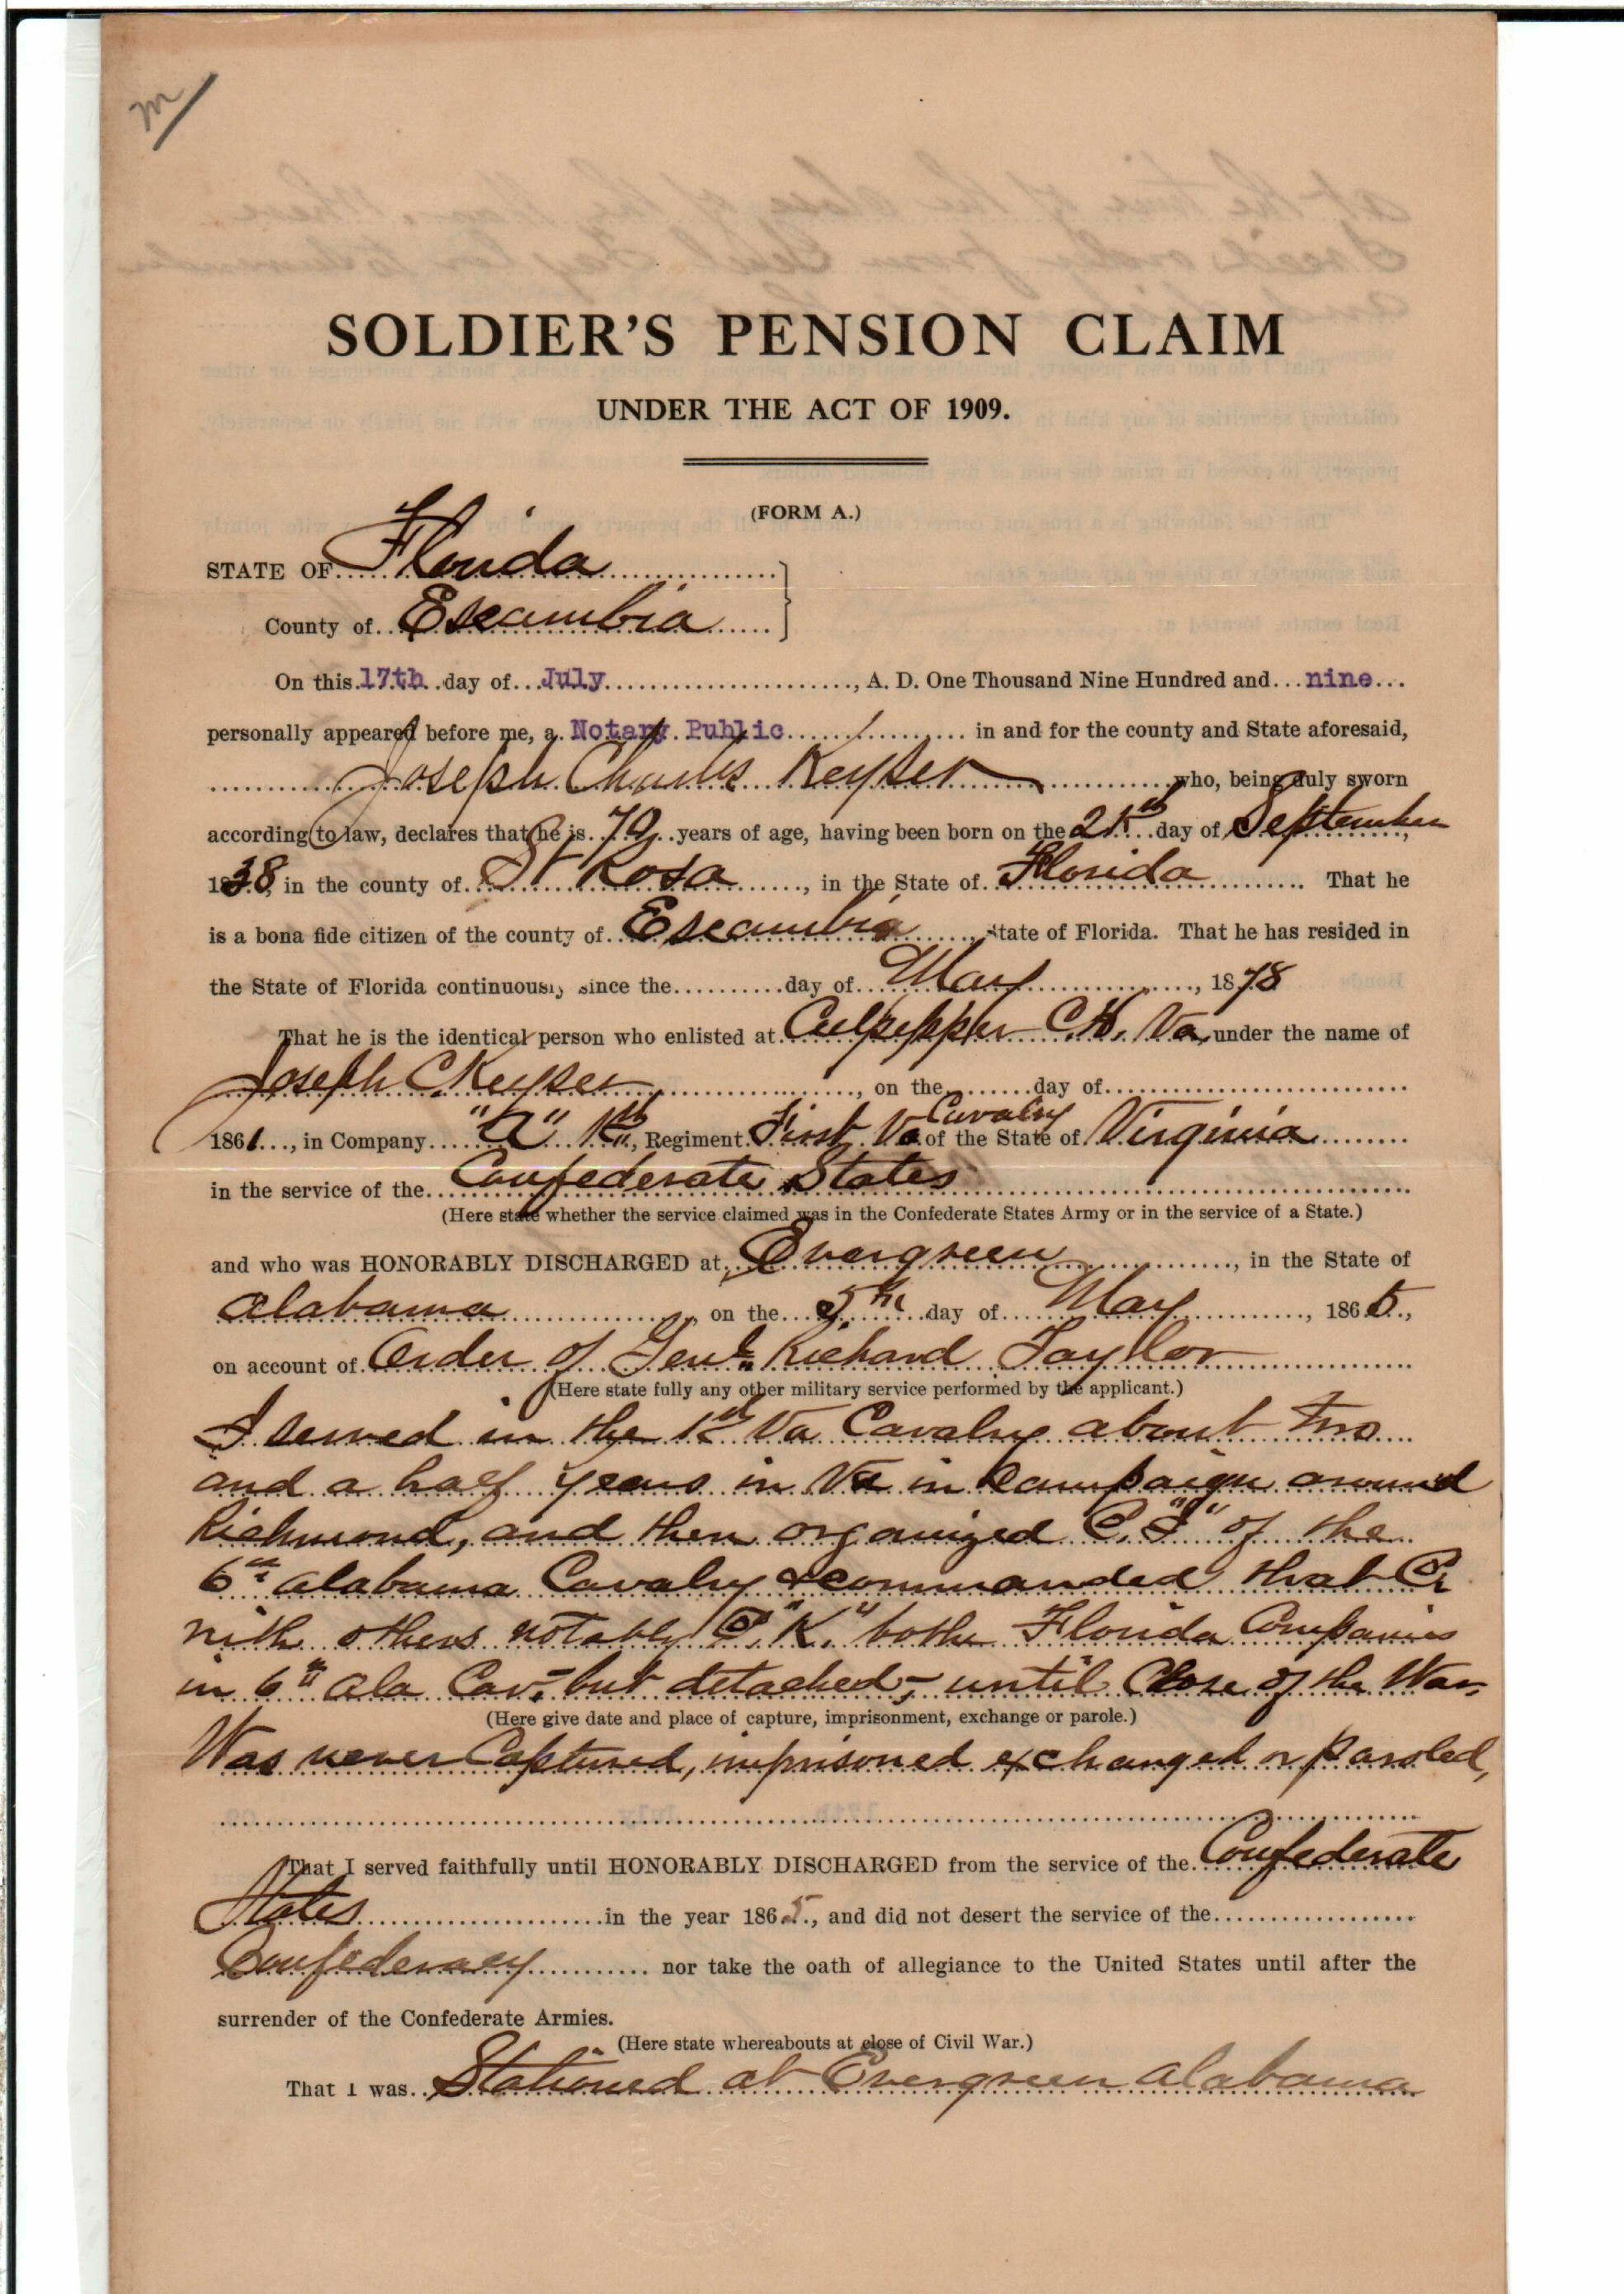 m/
SOLDIER'S PENSION CLAIM
UNDER THE ACT OF 1909.
(FORM A.)
STATE OF Florida
County of Escambia
On this 17th day of July, A. D. One Thousand Nine Hundred and nine
personally appeared before me, a Notary Public in and for the county and State aforesaid,
Joseph Charles Keyser who, being duly sworn
according to law, declares that he is 70 years of age, having been born on the day of September
1838, in the county of St Rosa, in the State of Florida. That he
is a bona fide citizen of the county of Escambia, State of Florida. That he has resided in
the State of Florida continuously since the day of May, 1878
That he is the identical person who enlisted at Culpepper C.H. Va under the name of
Joseph C Keyser, on the day of
1861, in Company "A", Regiment First Va Cavalry of the State of Virginia
in the service of the Confederate States
(Here state whether the service claimed was in the Confederate States Army or in the service of a State.)
and who was HONORABLY DISCHARGED at Evergreen, in the State of
Alabama, on the 5th day of May, 1865.,
on account of Order of Genl. Richard Taylor
(Here state fully any other military service performed by the applicant.)
I served in the 1st Va Cavalry about two
and a half years in Va in Campaign around
Richmond, and then organized C. "I" of the
6th Alabama Cavalry & commanded that Co
with others notably C. "K." bothe Florida Companies
in 6th Ala Cav - but detached -, until Close of the War,
(Here give date and place of capture, imprisonment, exchange or parole.)
Was never Captured, imprisoned exchanged or paroled,
That I served faithfully until HONORABLY DISCHARGED from the service of the Confederate
States in the year 1865., and did not desert the service of the
Confederacy nor take the oath of allegiance to the United States until after the
surrender of the Confederate Armies.
(Here state whereabouts at close of Civil War.)
That I was Stationed at Evergreen Alabama